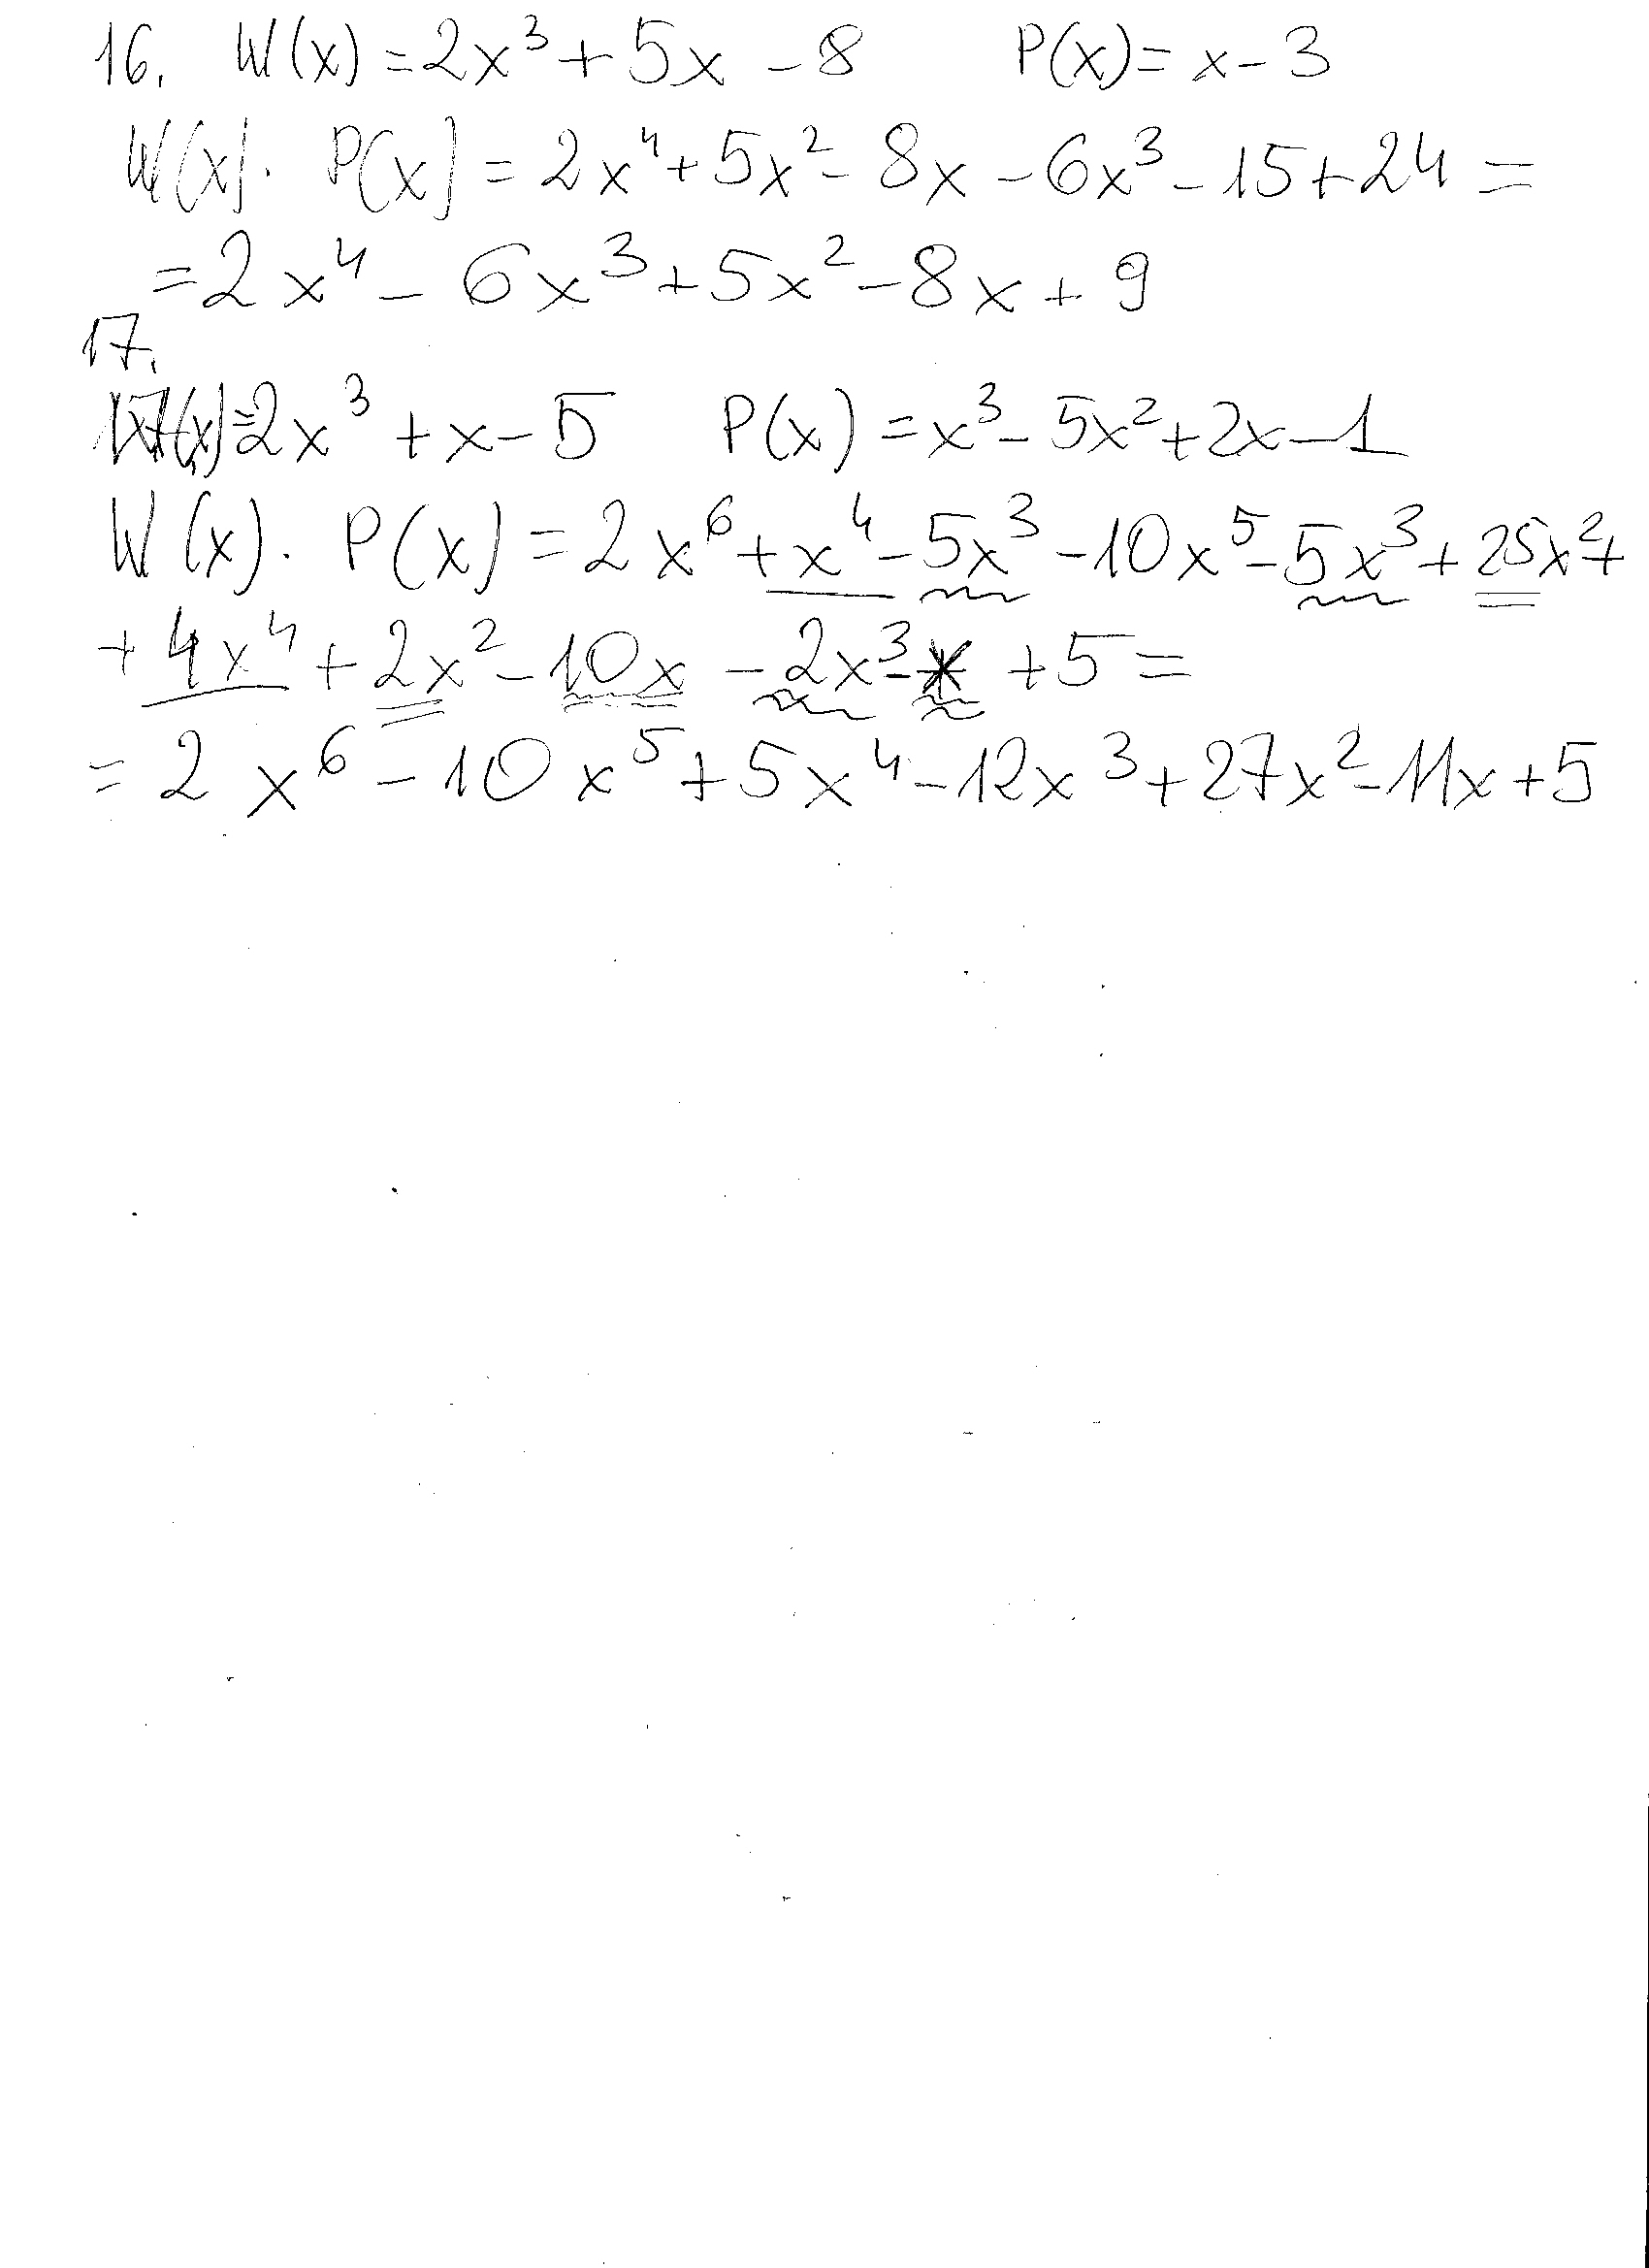 16. W(x) = 2x³ + 5x - 8 P(x) = x - 3
W(x) · P(x) = 2x⁴ + 5x² - 8x - 6x³ - 15 + 24 =
= 2x⁴ - 6x³ + 5x² - 8x + 9
17.
W(x) = 2x³ + x - 5 P(x) = x³ - 5x² + 2x - 1
W(x) · P(x) = 2x⁶ + x⁴ - 5x³ - 10x⁵ - 5x³ + 25x² +
+ 4x⁴ + 2x² - 10x - 2x³ - x + 5 =
= 2x⁶ - 10x⁵ + 5x⁴ - 12x³ + 27x² - 11x + 5